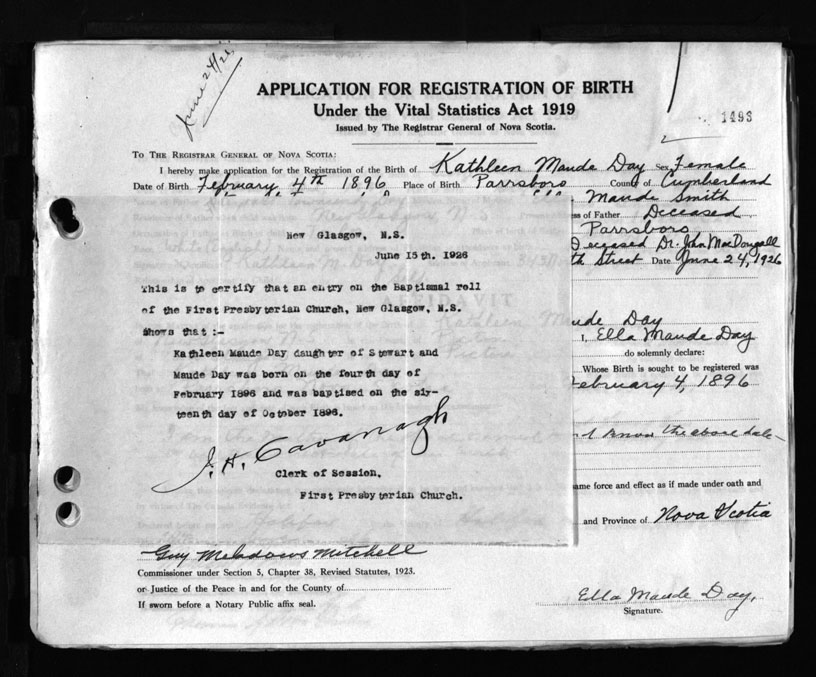 June 24/26
APPLICATION FOR REGISTRATION OF BIRTH
Under the Vital Statistics Act 1919
Issued by The Registrar General of Nova Scotia.
1493
TO THE REGISTRAR GENERAL OF NOVA SCOTIA:
I hereby make application for the Registration of the Birth of Kathleen Maude Day Sex Female
Date of Birth February 4th 1896 Place of Birth Parrsboro County of Cumberland
Maude Smith
ss of Father Deceased
Parrsboro
Deceased Dr. John MacDougall
th Street Date June 24, 1926
New Glasgow, N.S.
June 15th. 1926
This is to certify that an entry on the Baptismal roll
of the First Presbyterian Church, New Glasgow, N.S.
Shows that :-
Kathleen Maude Day daughter of Stewart and
Maude Day was born on the fourth day of
February 1896 and was baptised on the six-
teenth day of October 1896.
J. H. Cavanagh
Clerk of Session,
First Presbyterian Church.
ude Day
I, Ella Maude Day
do solemnly declare:
Whose Birth is sought to be registered was
February 4, 1896
I know the above date
ame force and effect as if made under oath and
and Province of Nova Scotia
Guy Meadows Mitchell
Commissioner under Section 5, Chapter 38, Revised Statutes, 1923.
or Justice of the Peace in and for the County of
If sworn before a Notary Public affix seal.
Ella Maude Day,
Signature.